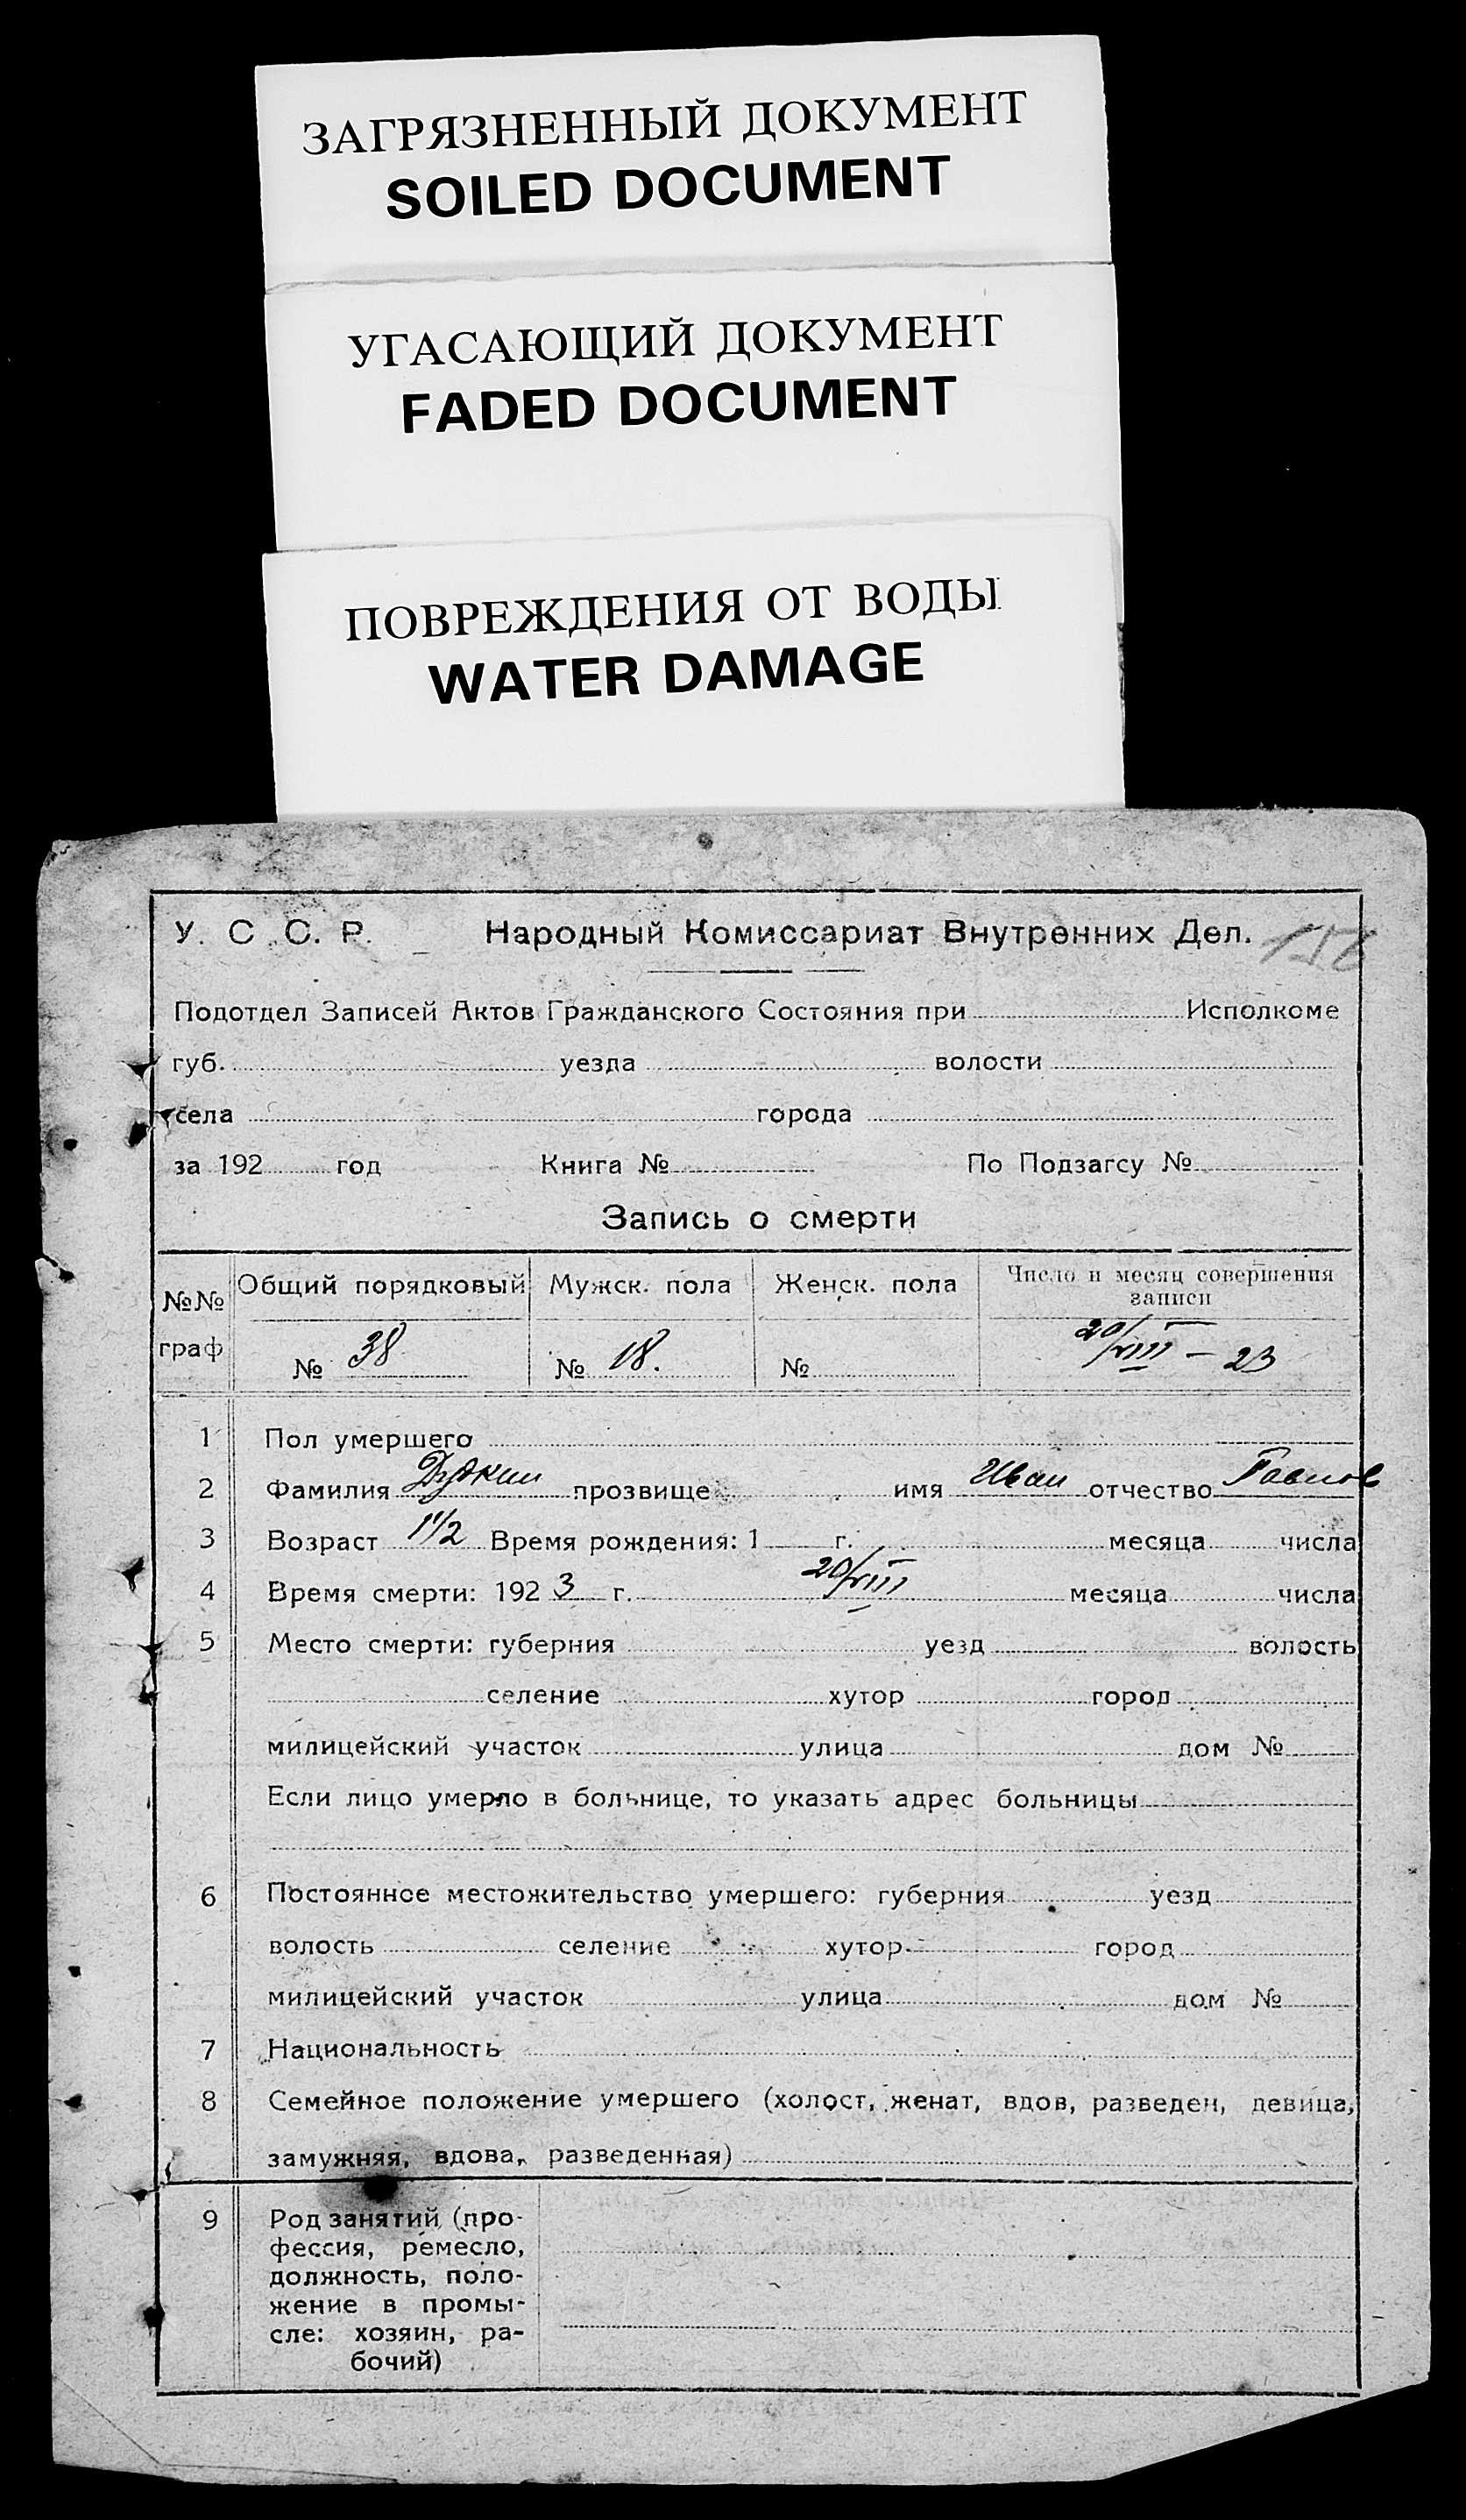 ЗАГРЯЗНЕННЫЙ ДОКУМЕНТ
SOILED DOCUMENT
УГАСАЮЩИЙ ДОКУМЕНТ
FADED DOCUMENT
ПОВРЕЖДЕНИЯ ОТ ВОДЫ
WATER DAMAGE
У. С. С. Р. Народный Комиссариат Внутренних Дел.
Подотдел Записей Актов Гражданского Состояния при Исполкоме
губ. уезда волости
села города
за 192 год Книга № По Подзагсу №
Запись о смерти
№№ граф Общий порядковый Мужск. пола Женск. пола Число и месяц совершения записи
№ 38 № 18. № 20/VIII – 23
1 Пол умершего
2 Фамилия прозвище имя Иван отчество
3 Возраст 1 1/2 Время рождения: 1 г. месяца числа
4 Время смерти: 1923 г. 20/VIII месяца числа
5 Место смерти: губерния уезд волость
селение хутор город
милицейский участок улица дом №
Если лицо умерло в больнице, то указать адрес больницы
6 Постоянное местожительство умершего: губерния уезд
волость селение хутор город
милицейский участок улица дом №
7 Национальность
8 Семейное положение умершего (холост, женат, вдов, разведен, девица,
замужняя, вдова, разведенная)
9 Род занятий (про-
фессия, ремесло,
должность, поло-
жение в промы-
сле: хозяин, ра-
бочий)